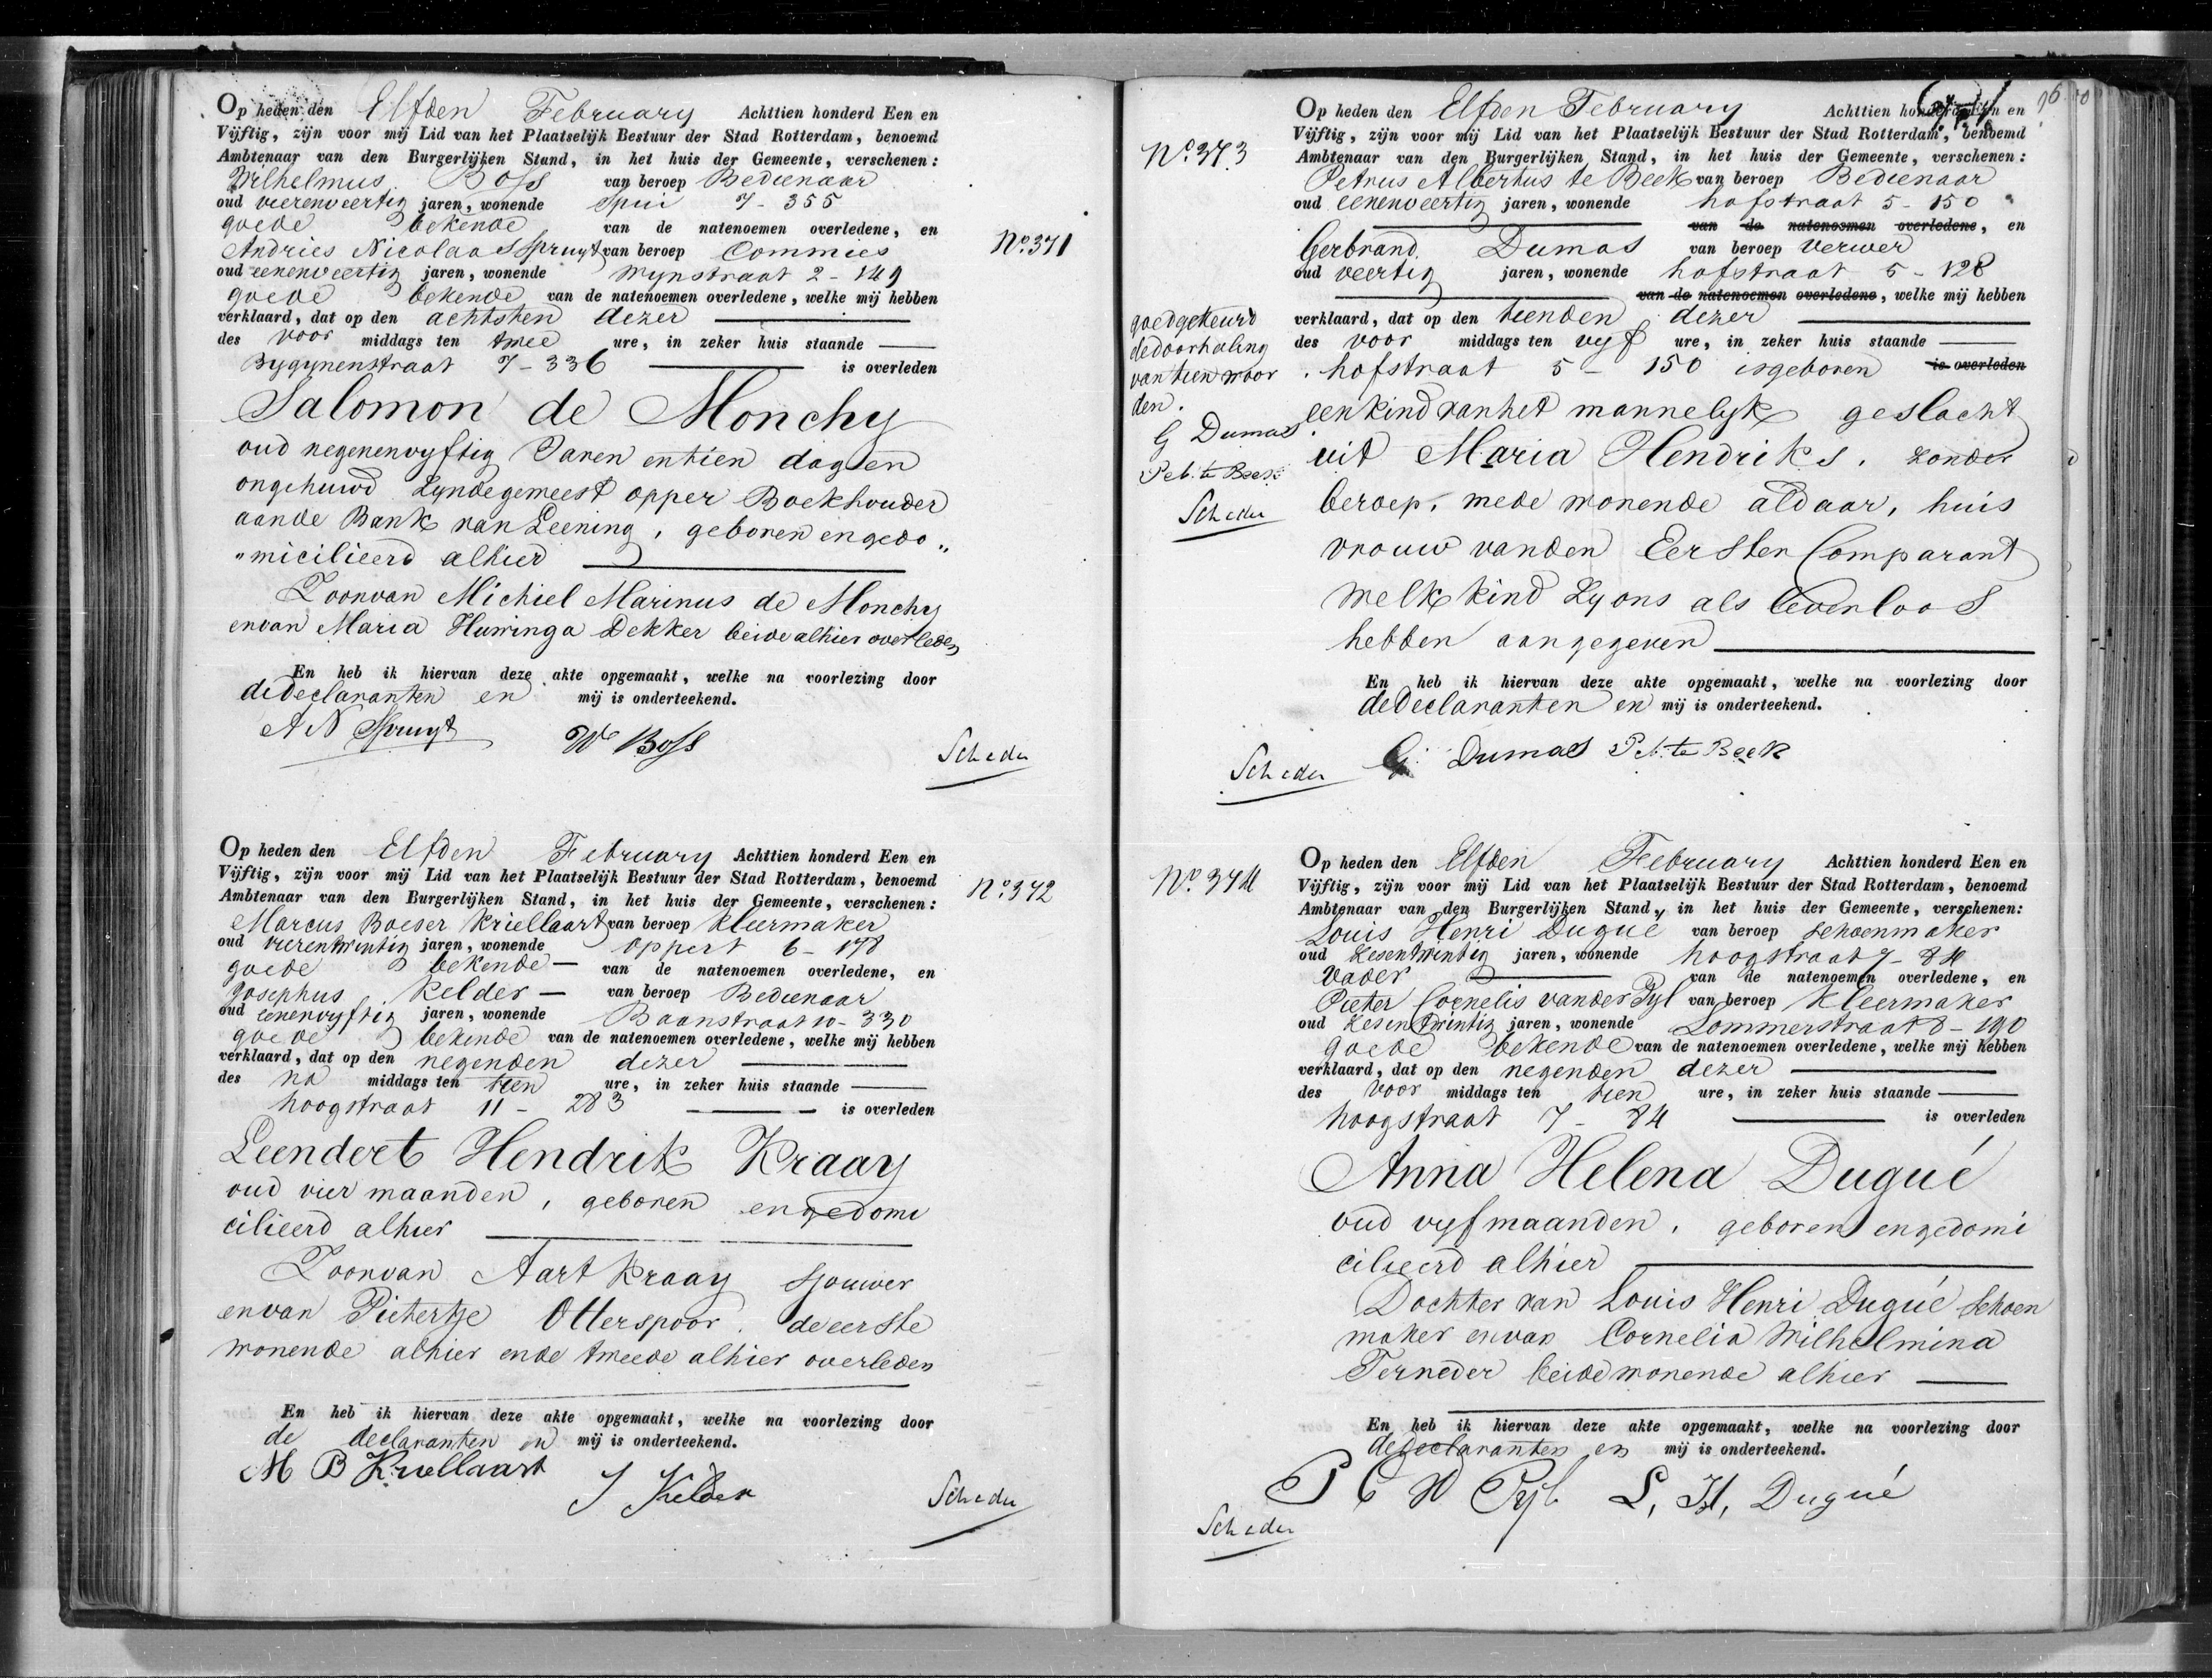 Op heden den Elfden February Achttien honderd Een en
Vijftig, zijn voor mij Lid van het Plaatselijk Bestuur der Stad Rotterdam, benoemd
Ambtenaar van den Burgerlijken Stand, in het huis der Gemeente, verschenen:
Wilhelmus Boss van beroep Bedienaar
oud vierenveertig jaren, wonende Spui 7-355
goede bekende van de natenoemen overledene, en
Andries Nicolaas Spruyt van beroep Commies
oud eenenveertig jaren, wonende Wynstraat 2-149
goede bekende van de natenoemen overledene, welke mij hebben
verklaard, dat op den achtsten dezer
des voor middags ten twee ure, in zeker huis staande
Bygynenstraat 7-336 is overleden
Salomon de Monchy
oud negenenvyftig Jaren en tien dagen
ongehuwd Zynde geweest opper Boekhouder
aande Bank van Leening, geboren en gedo„
„micilieerd alhier
Zoon van Michiel Marinus de Monchy
en van Maria Huninga Dekker beide alhier overleden
En heb ik hiervan deze akte opgemaakt, welke na voorlezing door
de declaranten en mij is onderteekend.
A N Spruyt W Boss
Scheder
No. 371
Op heden den Elfden February Achttien honderd Een en
Vijftig, zijn voor mij Lid van het Plaatselijk Bestuur der Stad Rotterdam, benoemd
Ambtenaar van den Burgerlijken Stand, in het huis der Gemeente, verschenen:
Marcus Boeser Kriellaart van beroep Kleermaker
oud vierentwintig jaren, wonende Oppert 6-178
goede bekende van de natenoemen overledene, en
Josephus Kelder van beroep Bedienaar
oud eenenvyftig jaren, wonende Baanstraat 10-330
goede bekende van de natenoemen overledene, welke mij hebben
verklaard, dat op den negenden dezer
des na middags ten tien ure, in zeker huis staande
hoogstraat 11-283 is overleden
Leendert Hendrik Kraay
oud vier maanden, geboren en gedomi
cilieerd alhier
Zoon van Aart Kraay Sjouwer
en van Pietertje Otterspoor. de eerste
wonende alhier en de tweede alhier overleden
En heb ik hiervan deze akte opgemaakt, welke na voorlezing door
de declaranten en mij is onderteekend.
M B Kriellaart J Kelder
Scheder
No. 372
Op heden den Elfden February Achttien honderd Een en
Vijftig, zijn voor mij Lid van het Plaatselijk Bestuur der Stad Rotterdam, benoemd
Ambtenaar van den Burgerlijken Stand, in het huis der Gemeente, verschenen:
Petrus Albertus te Beek van beroep Bedienaar
oud eenenveertig jaren, wonende hofstraat 5-150
van de natenoemen overledene, en
Gerbrand Dumas van beroep Verwer
oud veertig jaren, wonende hofstraat 5-128
van de natenoemen overledene, welke mij hebben
verklaard, dat op den tienden dezer
des voor middags ten vyf ure, in zeker huis staande
hofstraat 5-150 is geboren is overleden
een kind van het mannelyk geslacht
uit Maria Hendriks. zonder
beroep, mede wonende aldaar, huis
vrouw van den Eersten Comparant
welk kind Zy ons als levenloos
hebben aangegeven
En heb ik hiervan deze akte opgemaakt, welke na voorlezing door
de declaranten en mij is onderteekend.
G Dumas P A te Beek
Scheder
No. 373
goedgekeurd
de doorhaling
van tien woor
den.
G Dumas
P A te Beek
Scheder
Op heden den Elfden February Achttien honderd Een en
Vijftig, zijn voor mij Lid van het Plaatselijk Bestuur der Stad Rotterdam, benoemd
Ambtenaar van den Burgerlijken Stand, in het huis der Gemeente, verschenen:
Louis Henri Dugué van beroep Schoenmaker
oud zesentwintig jaren, wonende hoogstraat 7-84
Vader van de natenoemen overledene, en
Pieter Cornelis vander Pyl van beroep Kleermaker
oud zesentwintig jaren, wonende Lommerstraat 8-190
goede bekende van de natenoemen overledene, welke mij hebben
verklaard, dat op den negenden dezer
des voor middags ten tien ure, in zeker huis staande
hoogstraat 7-84 is overleden
Anna Helena Dugué
oud vyf maanden, geboren en gedomi
cilieerd alhier
Dochter van Louis Henri Dugué Schoen
maker en van Cornelia Wilhelmina
Terneder beide wonende alhier
En heb ik hiervan deze akte opgemaakt, welke na voorlezing door
de declaranten en mij is onderteekend.
P C V D Pyl L, H, Dugué
Scheder
No. 374